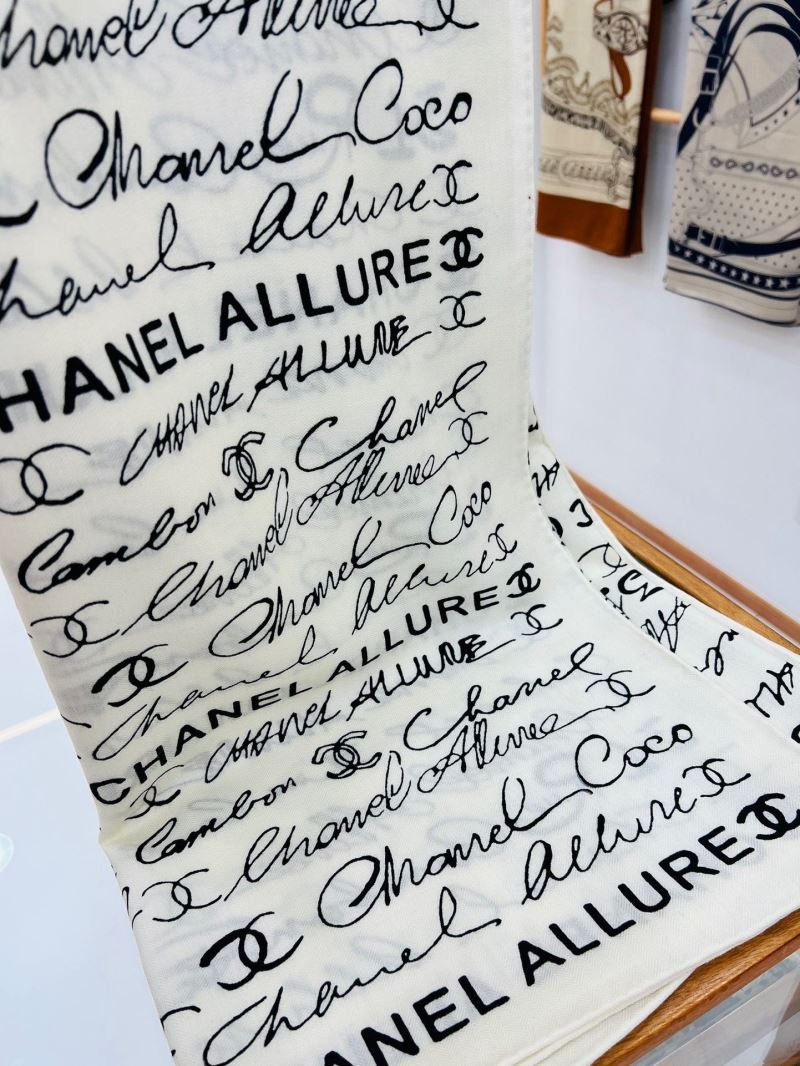 Chanel Allure
Chanel Coco
Chanel Allure
HANEL ALLURE
CHANEL ALLURE
Cambon Chanel
Chanel Allure
Chanel Coco
Chanel Allure
CHANEL ALLURE
CHANEL ALLURE
Cambon Chanel
Chanel Allure
Chanel Coco
Chanel Allure
ANEL ALLURE